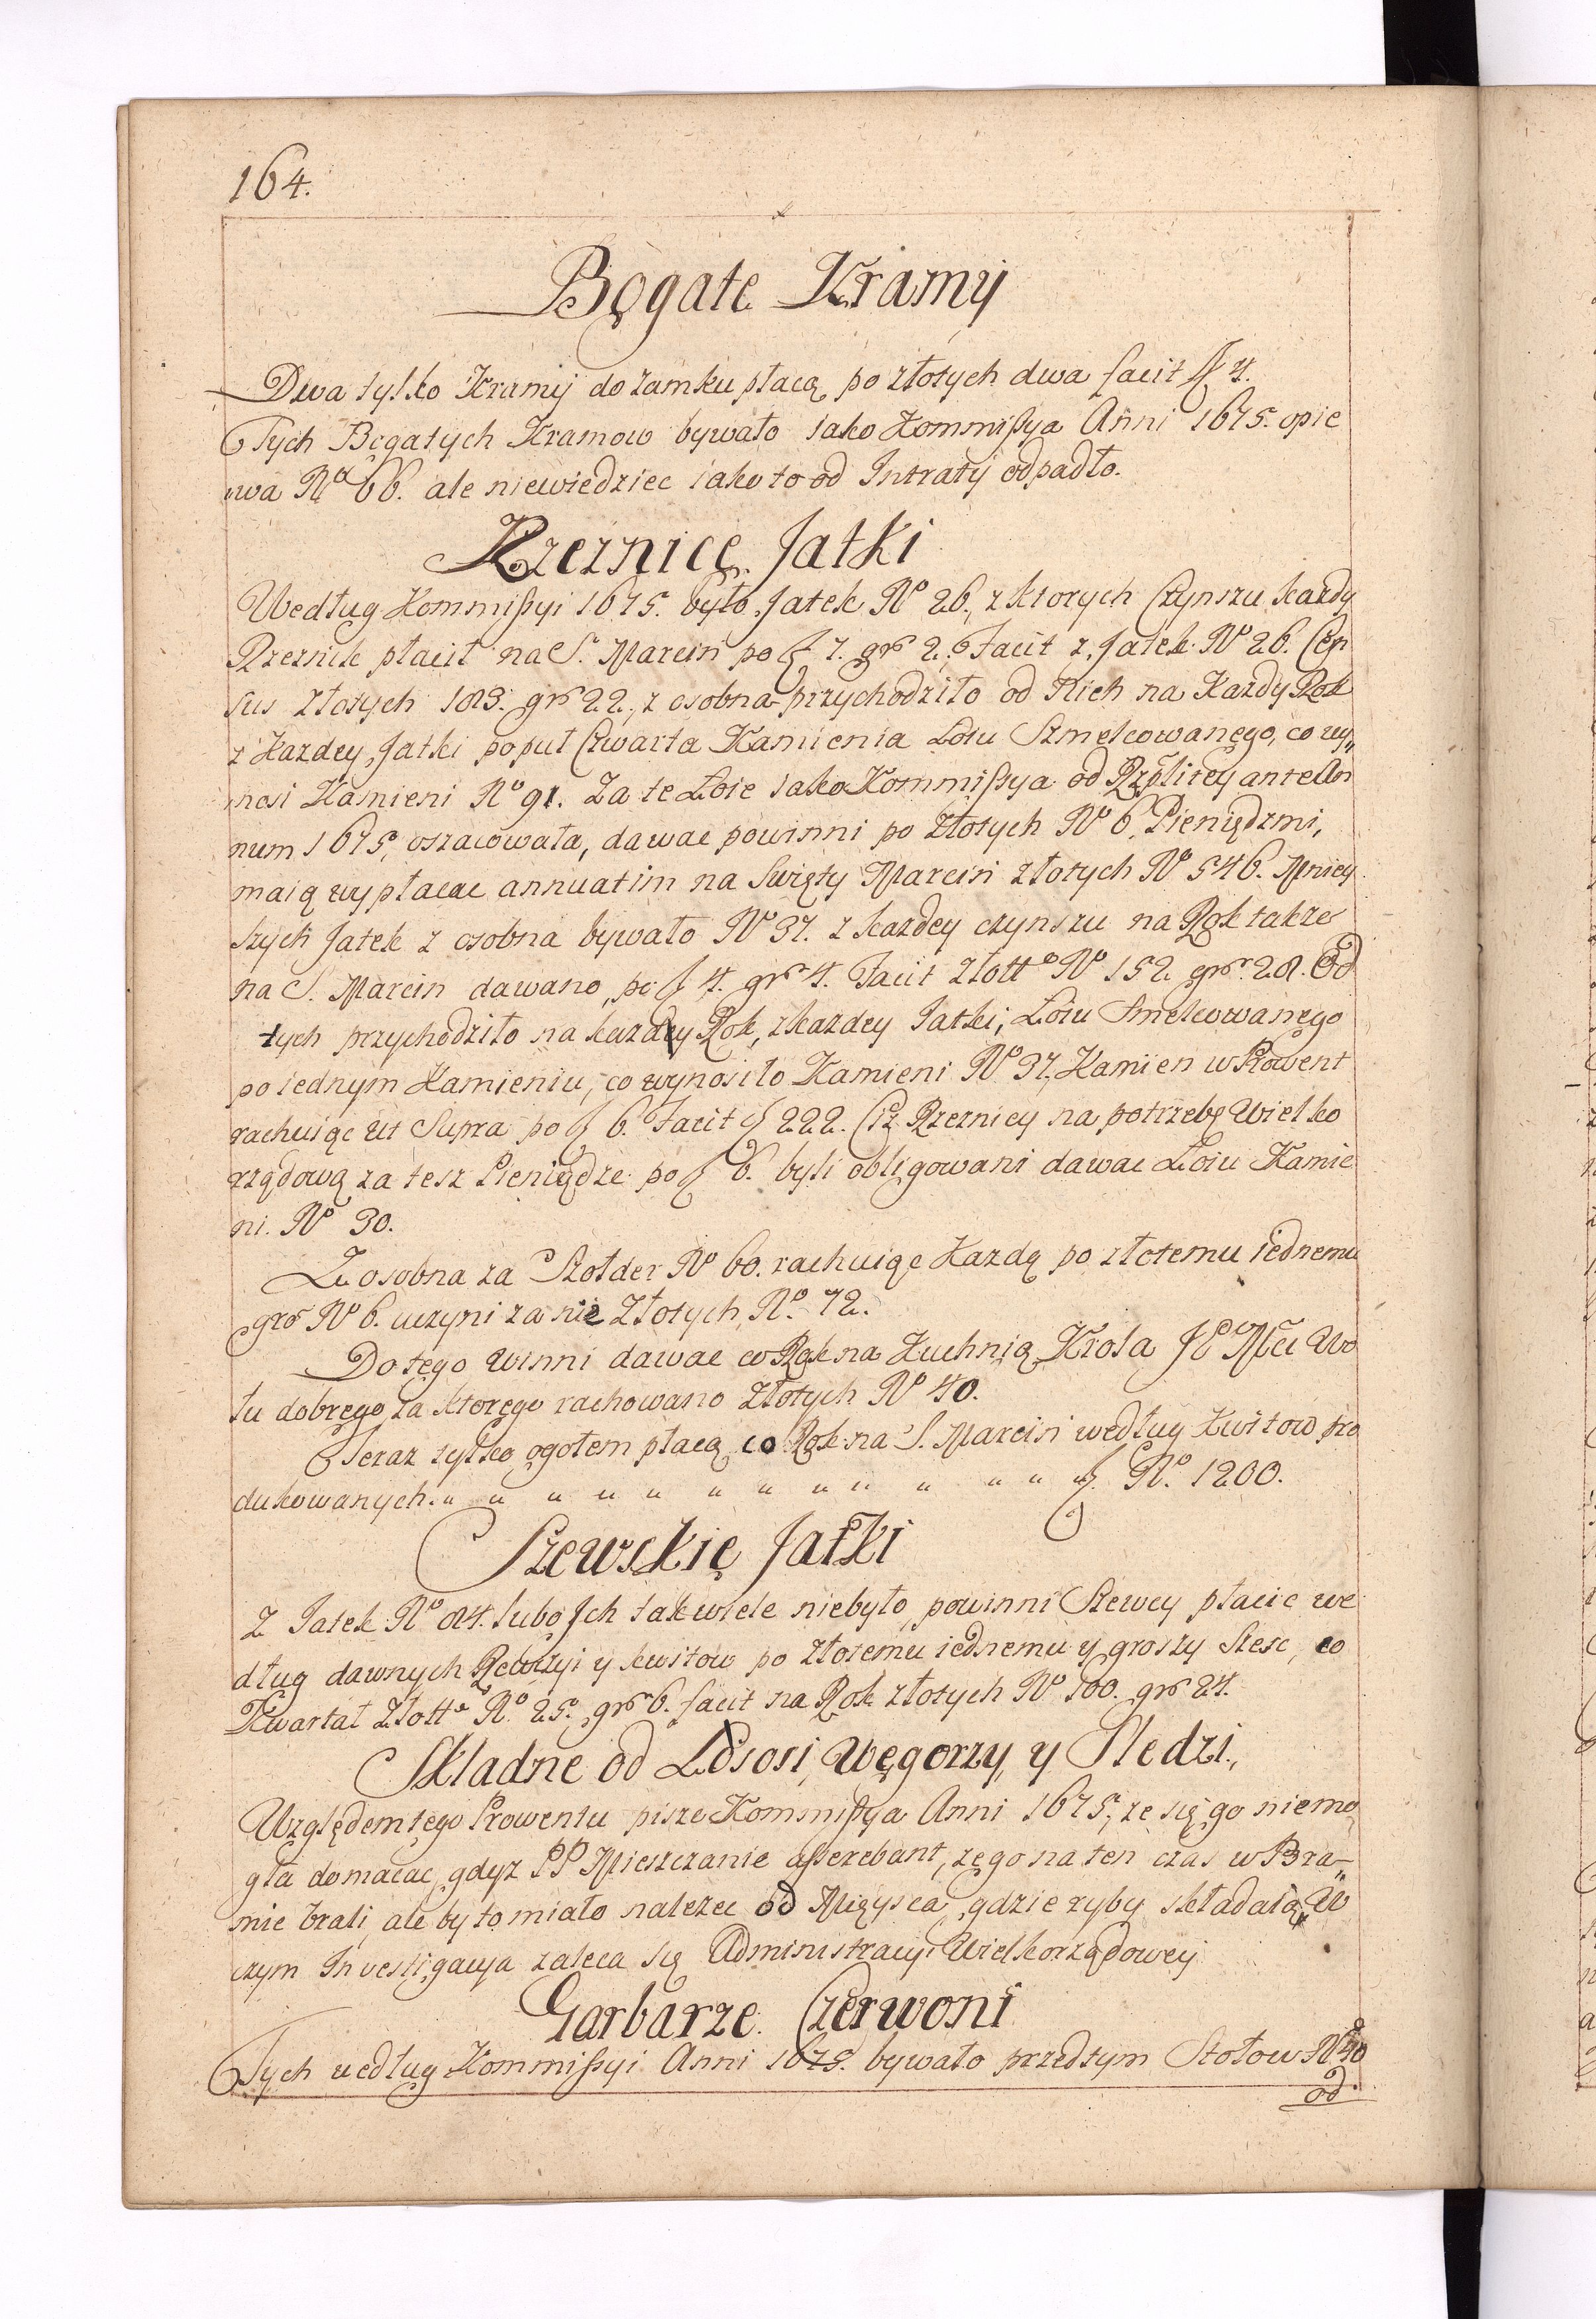 164.
Bogate Kramy
Dwa tylko Kramy do zamku płacą po złotych dwa facit f 4.
Tych Bogatych Kramow bywało iako Kommißya Anni 1675. opie
wa No 66. ale niewiedziec iako to od Intraty odpadło.
Rzeznice Jatki
Według Kommißyi 1675. było Jatek No 26, z ktorych Czynszu kazdy
Rzeznik płacił na S. Marcin po f 7. gr 2. Facit z Jatek No 26. Cen
sus Złotych 183. gr 22, z osobna przychodziło od Nich na Kazdy Rok
z Kazdey Jatki po puł Czwarta Kamienia Łoiu Szmelcowanego, co wy„
nosi Kamieni No 91. Za te Łoie iako Kommißya od Rzplitey ante An
num 1675, oszacowała, dawac powinni po Złotych No 6, Pieniędzmi,
maią wypłacac annuatim na Swięty Marcin złotych No 546. Mniey
szych Jatek z osobna bywało No 37. z kazdey czynszu na Rok takze
na S. Marcin dawano, po f 4. gr 4. Facit Złotto No 152 gr 28. Od
tych przychodziło na kazdy Rok, z kazdey Jatki, Łoiu Smelcowanego
po iednym Kamieniu, co wynosiło Kamieni No 37, Kamien w Prowent
rachuiąc ut Supra po f 6. Facit f 222. Ciz Rzeznicy na potrzebę Wielko
rządową za tesz Pieniądze po f 6. byli obligowani dawac Łoiu Kamie
ni. No 30.
Z osobna za Szołder No 60. rachuiąc Kazdą po złotemu iednemu
gro No 6. uczyni za nie Złotych No. 72.
Do tego winni dawac co Rok na Kuchnią Krola JEo Mci Wo
łu dobrego za ktorego rachowano Złotych No 40.
Teraz tylko ogołem płacą co Rok na S. Marcin według Kwitow pro
dukowanych. „ „ „ „ „ „ „ „ „ „ „ „ f. No. 1200.
Szewckie Jatki
Z Jatek No 84. lubo Jch tak wiele niebyło, powinni Szewcy płacic we
dług dawnych Rewizyi y kwitow po Złotemu iednemu y groszy szesc, co
Kwartał Złotto No. 25. gr 6. facit na Rok złotych No 100. gr 24.
Składne od Łososi, Węgorzy, y Sledzi,
Względem tego Prowentu pisze Kommißya Anni 1675, ze się go niemo
gła domacac, gdyz PP Mieszczanie aßerebant, ze go na ten czas w Bra„
mie brali, ale by to miało nalezec od Mieysca, gdzie ryby składaią, W
czym Investigacya zaleca się Administracyi Wielkorządowey
Garbarze Czerwoni
Tych według Kommißyi Anni 1675. bywało przedtym Stołow No 40
od.